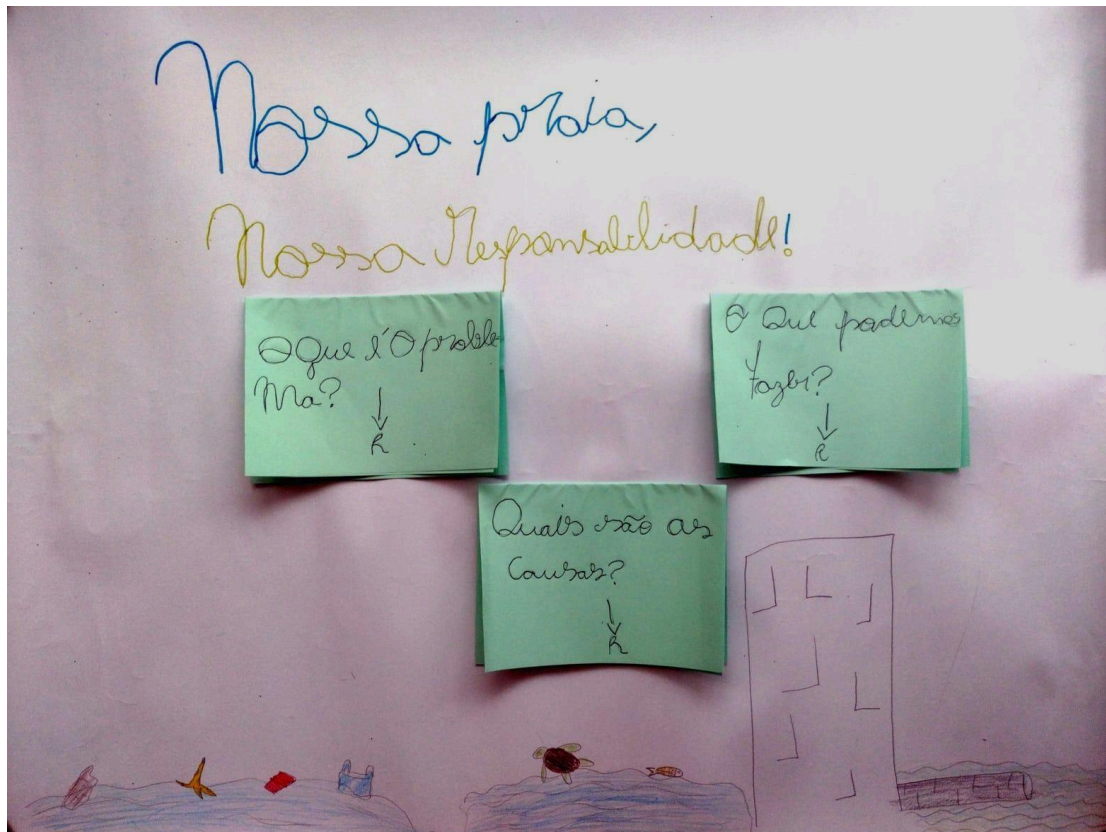 Nossa praia,
Nossa Responsabilidade!
O Que é O proble
Ma?
R
O Que podemos
fazer?
R
Quais são as
Causas?
R